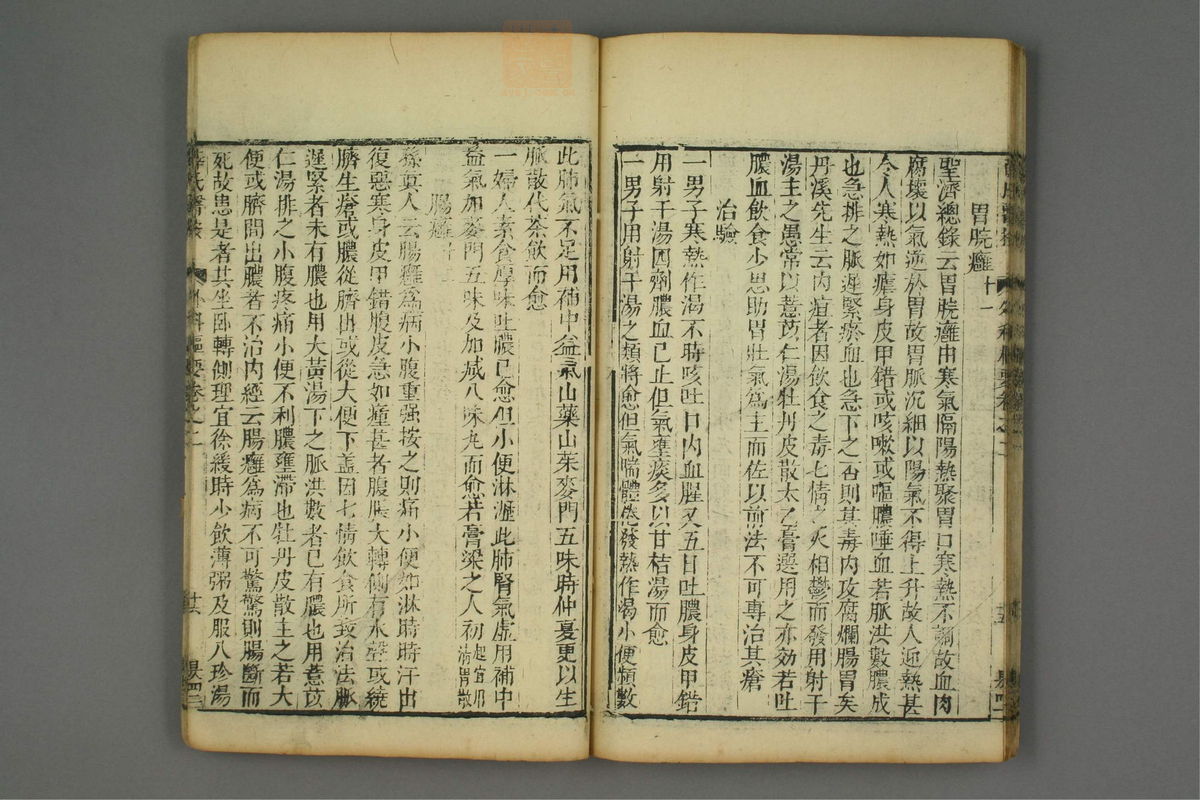 胃脘癰十一
聖濟總錄云胃脘癰由寒氣隔陽熱聚胃口寒熱不調故血肉
腐壞以氣逆於胃故胃脈沉細以陽氣不得上升故人迎熱甚
令人寒熱如瘧身皮甲錯或咳嗽或嘔膿唾血若脈洪數膿成
也急排之脈遲緊瘀血也急下之否則其毒內攻腐爛腸胃矣
丹溪先生云內疽者因飲食之毒七情之火相鬱而發用射干
湯主之愚常以薏苡仁湯牡丹皮散太乙膏選用之亦効若吐
膿血飲食少思助胃壯氣為主而佐以前法不可專治其瘡
治驗
一男子寒熱作渴不時咳吐口內血腥又五日吐膿身皮甲錯
用射干湯四劑膿血已止但氣壅痰多以甘桔湯而愈
一男子用射干湯之類將愈但氣喘體倦發熱作渴小便頻數
此肺氣不足用補中益氣山藥山茱麥門五味時仲夏更以生
脈散代茶飲而愈
一婦人素食厚味吐膿已愈但小便淋瀝此肺腎氣虛用補中
益氣加麥門五味及加減八味丸而愈若膏粱之人初起宜用清胃散
腸癰十二
孫真人云腸癰為病小腹重強按之則痛小便如淋時時汗出
復惡寒身皮甲錯腹皮急如腫甚者腹脹大轉側有水聲或繞
臍生瘡或膿從臍出或從大便下蓋因七情飲食所致治法脈
遲緊者未有膿也用大黃湯下之脈洪數者已有膿也用薏苡
仁湯排之小腹疼痛小便不利膿壅滯也牡丹皮散主之若大
便或臍間出膿者不治內經云腸癰為病不可驚驚則腸斷而
死故患是者其坐臥轉側理宜徐緩時少飲薄粥及服八珍湯
薛氏醫按 外科樞要卷之二 十六